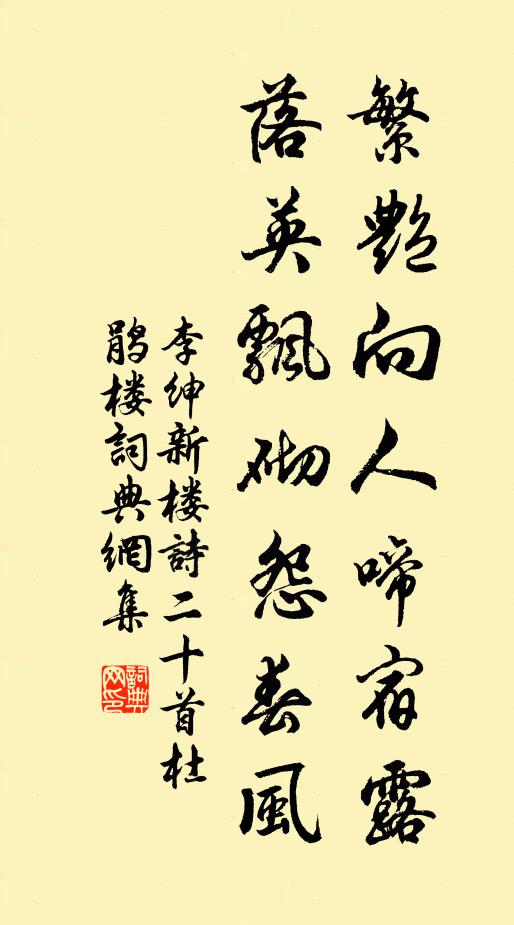 繁艷向人啼宿露
落英飄砌怨春風
李紳新楼詩二十首杜
鹃楼詞典網集
詞典
网印